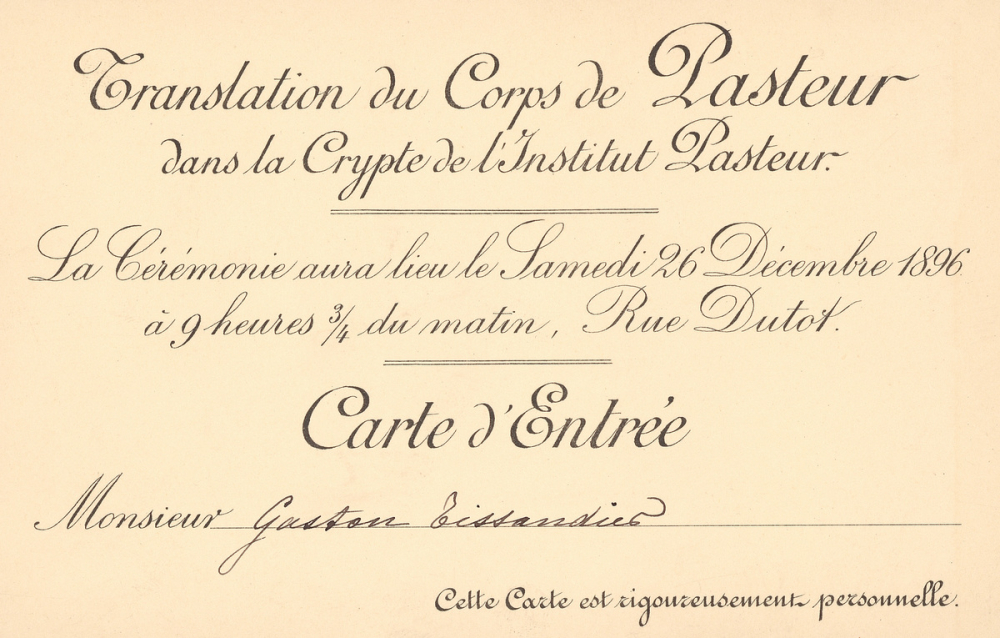 Translation du Corps de Pasteur
dans la Crypte de l'Institut Pasteur.
La Cérémonie aura lieu le Samedi 26 Décembre 1896
à 9 heures 3/4 du matin, Rue Dutot.
Carte d'Entrée
Monsieur Gaston Tissandier
Cette Carte est rigoureusement personnelle.